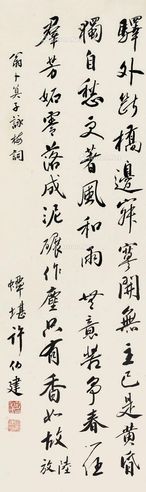 驛外斷橋邊寂寞開無主已是黃昏
獨自愁更著風和雨無意苦爭春一任
羣芳妬零落成泥碾作塵只有香如故陸放
翁卜算子詠梅詞
蟫堪許伯建